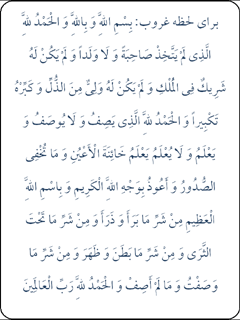 برای لحظه غروب: بِسْمِ اللّٰهِ وَ بِاللّٰهِ وَ الْحَمْدُ لِلّٰهِ
الَّذِی لَمْ یَتَّخِذْ صَاحِبَةً وَ لَا وَلَداً وَ لَمْ یَكُنْ لَهُ
شَرِیكٌ فِی الْمُلْكِ وَ لَمْ یَكُنْ لَهُ وَلِیٌّ مِنَ الذُّلِّ وَ كَبِّرْهُ
تَكْبِیراً وَ الْحَمْدُ لِلّٰهِ الَّذِی یَصِفُ وَ لَا یُوصَفُ وَ
یَعْلَمُ وَ لَا یُعْلَمُ یَعْلَمُ خَائِنَةَ الْأَعْیُنِ وَ مَا تُخْفِی
الصُّدُورُ وَ أَعُوذُ بِوَجْهِ اللّٰهِ الْكَرِیمِ وَ بِاسْمِ اللّٰهِ
الْعَظِیمِ مِنْ شَرِّ مَا بَرَأَ وَ ذَرَأَ وَ مِنْ شَرِّ مَا تَحْتَ
الثَّرَی وَ مِنْ شَرِّ مَا بَطَنَ وَ ظَهَرَ وَ مِنْ شَرِّ مَا
وَصَفْتُ وَ مَا لَمْ أَصِفْ وَ الْحَمْدُ لِلّٰهِ رَبِّ الْعَالَمِینَ